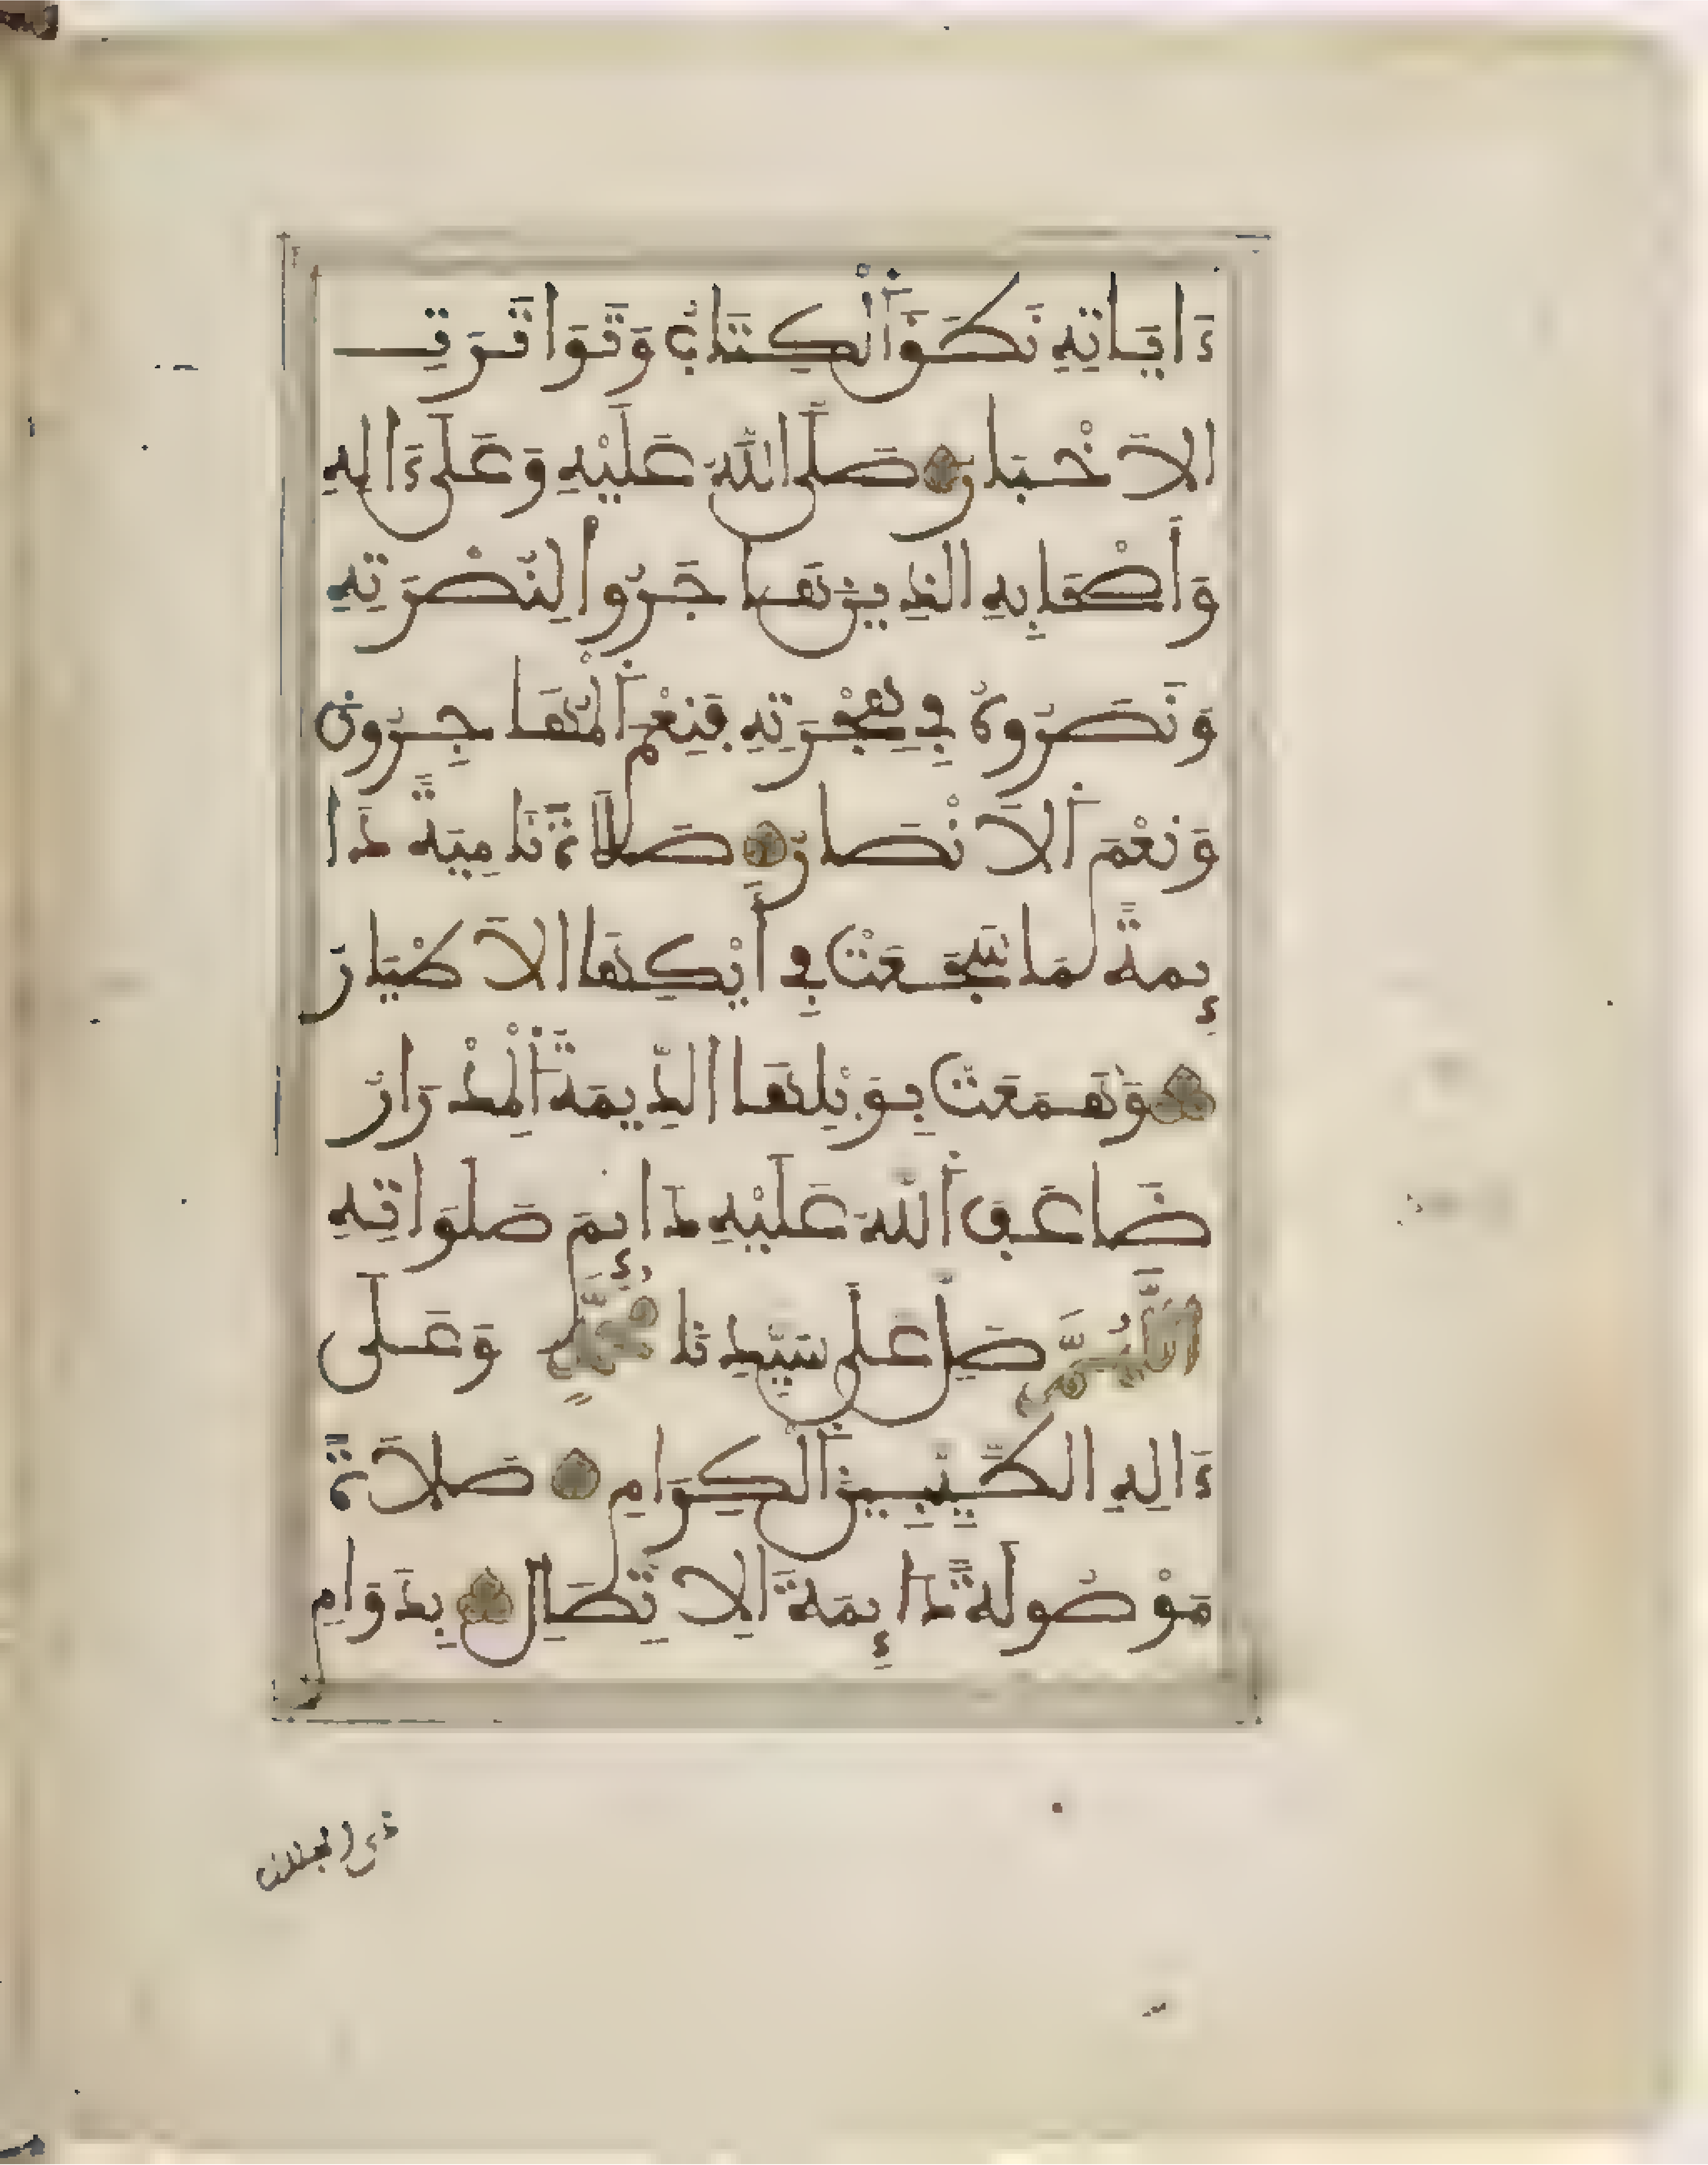 ءَايَاتِهِ نَطَقَ ٱلْكِتَابُ وَتَوَاتَرَتِ
الاَخْبَارُ صَلَّى اللَّهُ عَلَيْهِ وَعَلَى ءَالِهِ
وَأَصْحَابِهِ الذِينَ هَاجَرُوا لِنُصْرَتِهِ
وَنَصَرُوهُ فِي هِجْرَتِهِ فَنِعْمَ ٱلْمُهَاجِرُونَ
وَنِعْمَ ٱلاَنْصَارُ صَلاَةً نَامِيَةً دَا
ئِمَةً مَا سَجَعَتْ فِي أَيْكِهَا الاَطْيَارُ
وَهَمَعَتْ بِوَبْلِهَا الدِّيمَةُ ٱلْمِدْرَارُ
ضَاعَفَ ٱللَّهُ عَلَيْهِ دَائِمَ صَلَوَاتِهِ
اللَّهُمَّ صَلِّ عَلَى سَيِّدِنَا مُحَمَّدٍ وَعَلَى
ءَالِهِ الطَّيِّبِينَ ٱلْكِرَامِ صَلاَةً
مَوْصُولَةً دَائِمَةَ ٱلاِتِّصَالِ بِدَوَامِ
ذي الجلال